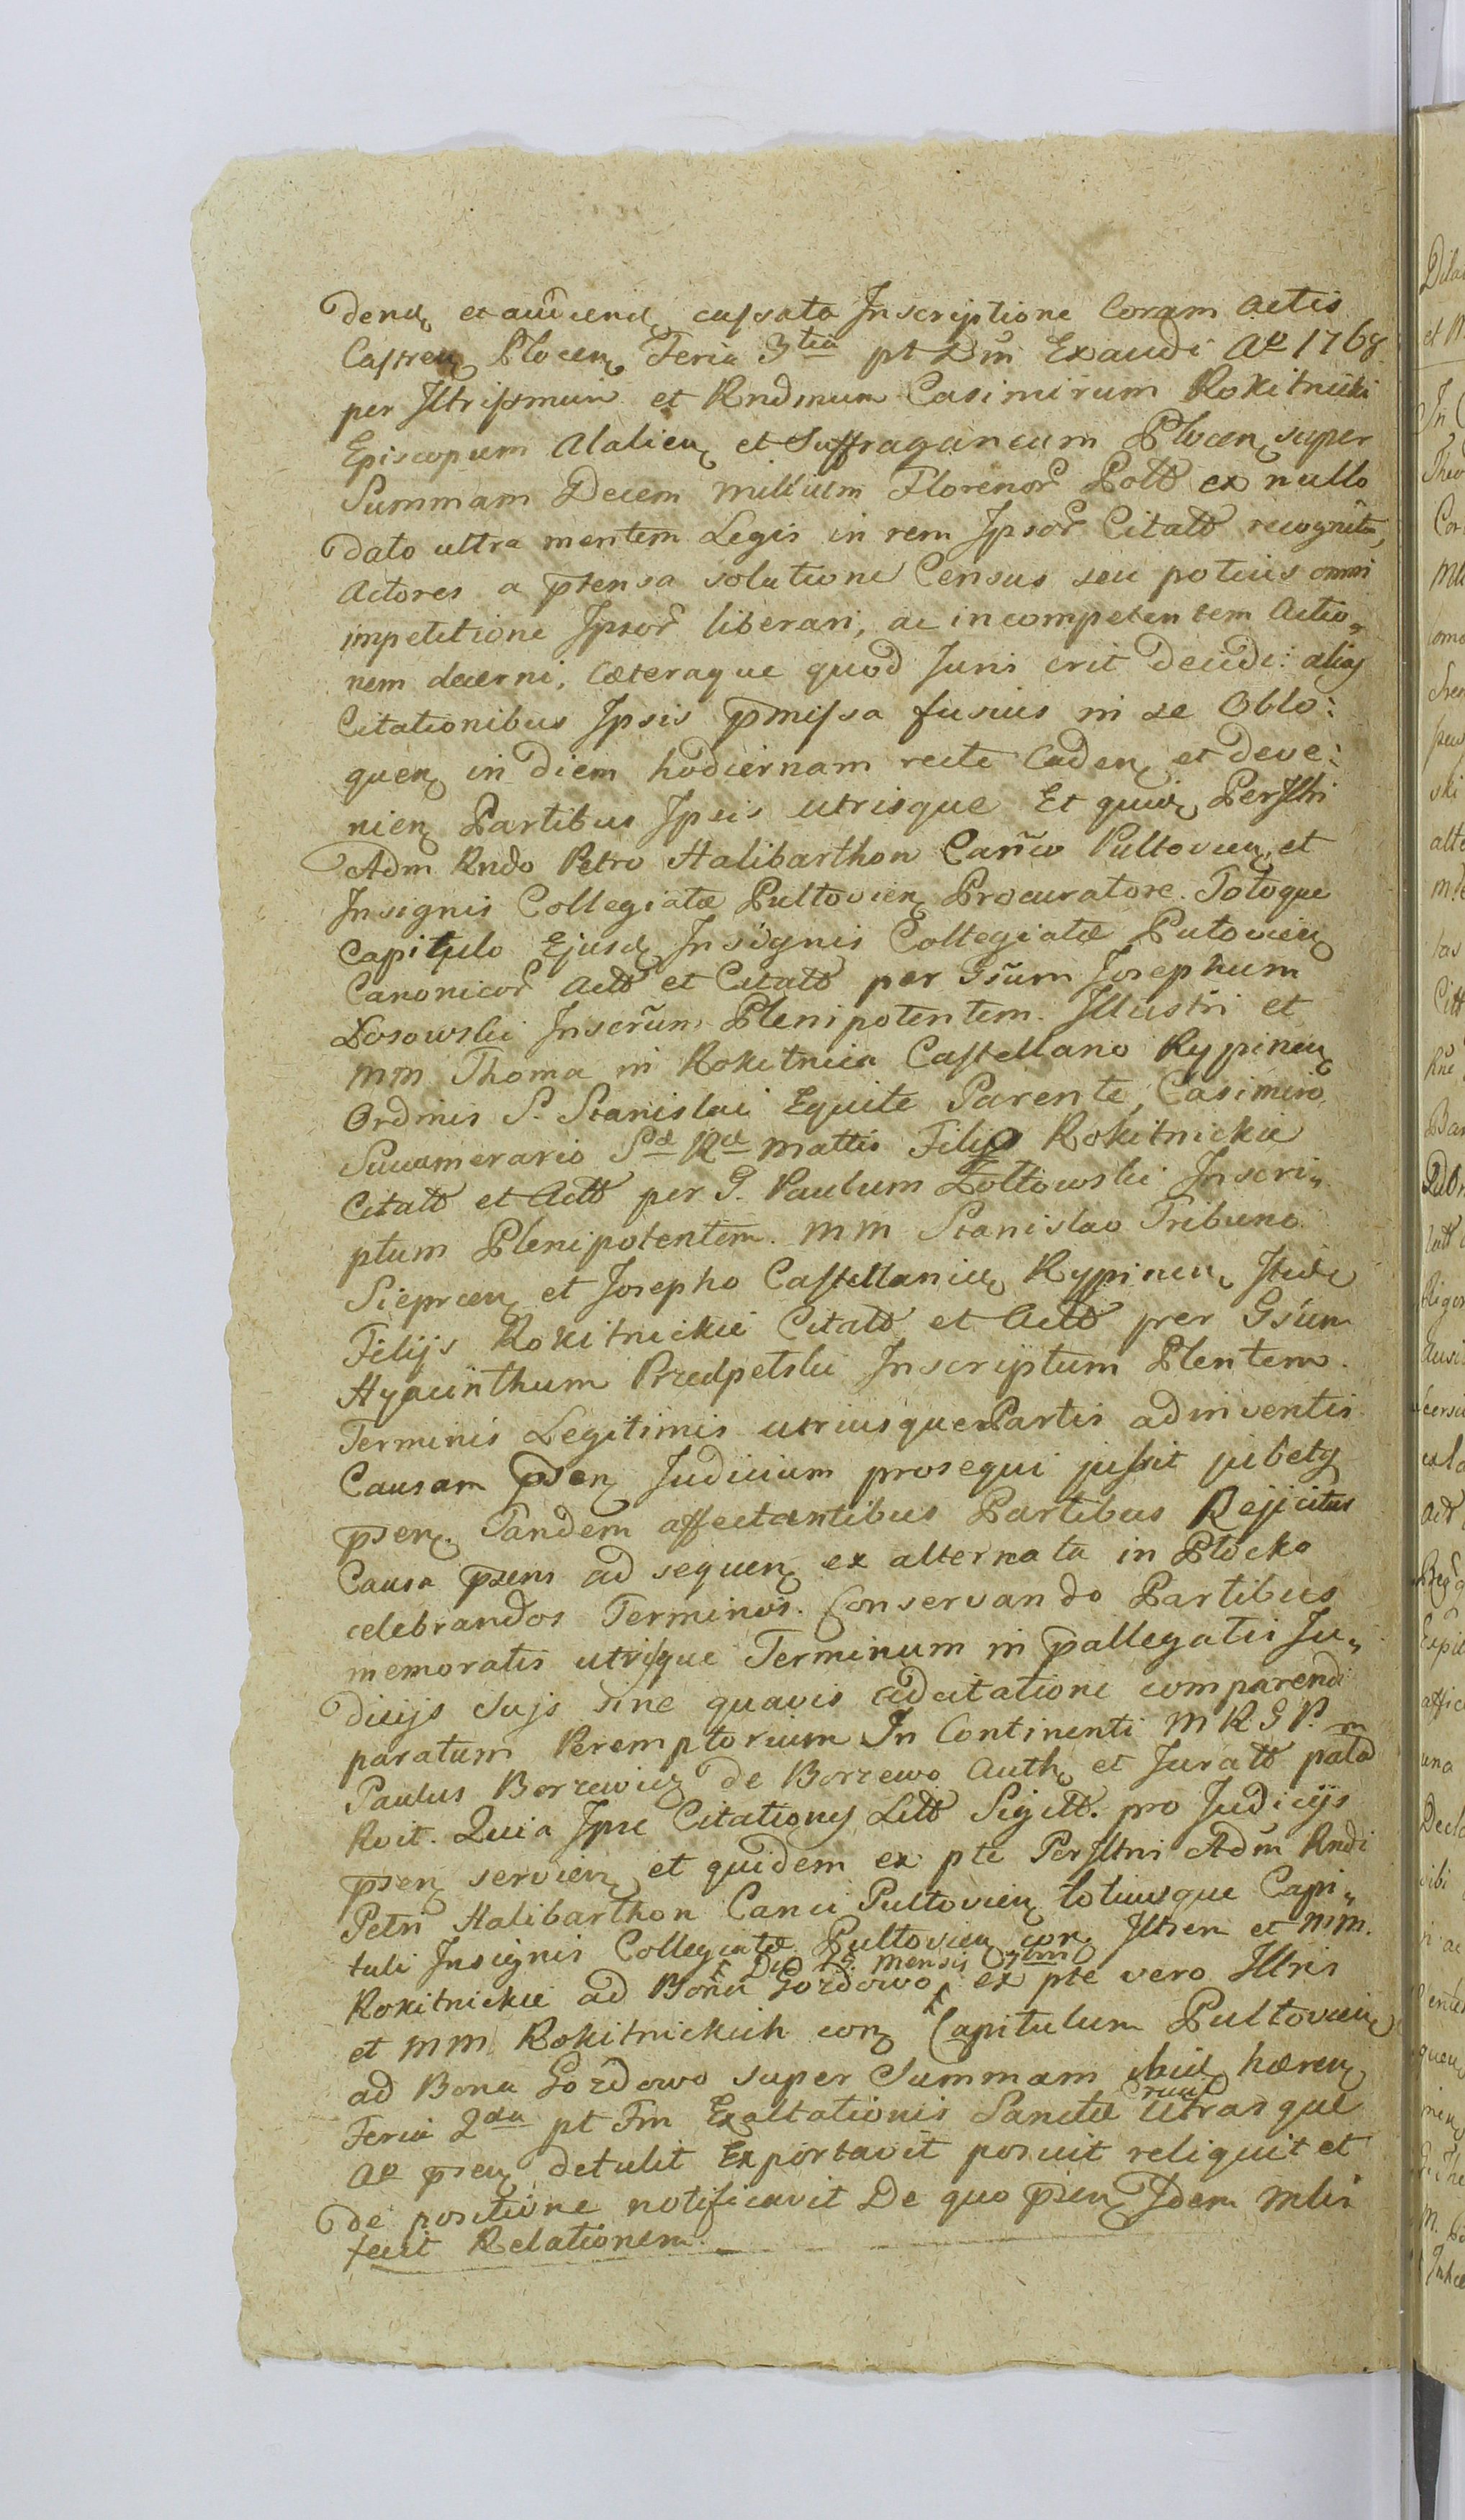 dend et audiend cassata Inscriptione Coram Actis
Castren Plocen Feria 3tia pt Dm Exaudi Ao 1768
per Illrissmum et Rndmum Casimirum Rokitnicki
Episcopum Alalien et Suffraganeum Plocen super
Summam Decem millium Florenor Poll ex nullo
dato ultra mentem Legis in rem Ipsor Citatt recognita,
Actores a ptensa solutione Census seu potius omni
impetitione Ipsor liberari, ac incompetentem Actio„
nem decerni, Cæteraque quod Juris erit decidi: alias
Citationibus Ipsis pmissa fusius in se Oblo:
quen in diem hodiernam recte Caden et deve:
nien Partibus Ipsis utrisque Et quid PerIllri
Adm Rndo Petro Halibarthon Canco Pultovien, et
Insignis Collegiatæ Pultovien Procuratore. Totoque
Capitulo Ejusd Insignis Collegiatæ Putovien
Canonicor Actt et Citatt per Gsum Josephum
Dosowski Inscrum Plenipotentem. Illustri et
MM Thoma in Rokitnica Castellano Rypinen
Ordinis S. Stanislai Equite Parente, Casimiro
Succamerario Sæ Ræ Mattis Filio Rokitnickie
Citatt et Actt per G. Paulum Zołtowski Inscri„
ptum Plenipotentem. MM Stanislao Tribuno
Sieprcen et Josepho Castellanic Rypinen
Filijs Rokitnickie Citatt et Actt per Gsum
Hyacinthum Przedpetski Inscriptum Plentem.
Terminis Legitimis utriusque Partis adinventis
Causam psen Judicium prosequi jussit jubetq
psen. Tandem affectantibus Partibus Rejicitur
Causa psens ad sequen ex alternata in Płocko
celebrandos Terminos. Conservando Partibus
memoratis utrisque Terminum in pallegatis Ju„
dicijs Sujs sine quavis adcitatione comparendi
paratum Peremptorium In Continenti M R G P. m
Paulus Borzewicz de Borzewo Auth et Juratt palā
Roit. Quia Ipse Citationes Litt Sigill. pro Judicijs
psen servien et quidem ex pte PerIllris Adm Rndi
Petri Halibarthon Canci Pultovien totiusque Capi„
tuli Insignis Collegiatæ Pultovien con Illrem et MM.
Die 15 mensis 7bris
Rokitnickie ad Bona Gozdowo ex pte vero Illris
et MM Rokitnickich con Capitulum Pultovien
ad Bona Gozdowo super Summam ibid hæren
Feria 2da pt Fm Exaltationis Sanctæ Crucis utrasque
Ao psen detulit Exportavit posuit reliquit et
de positione notificavit De quo psen Idem Mlis
fecit Relationem.